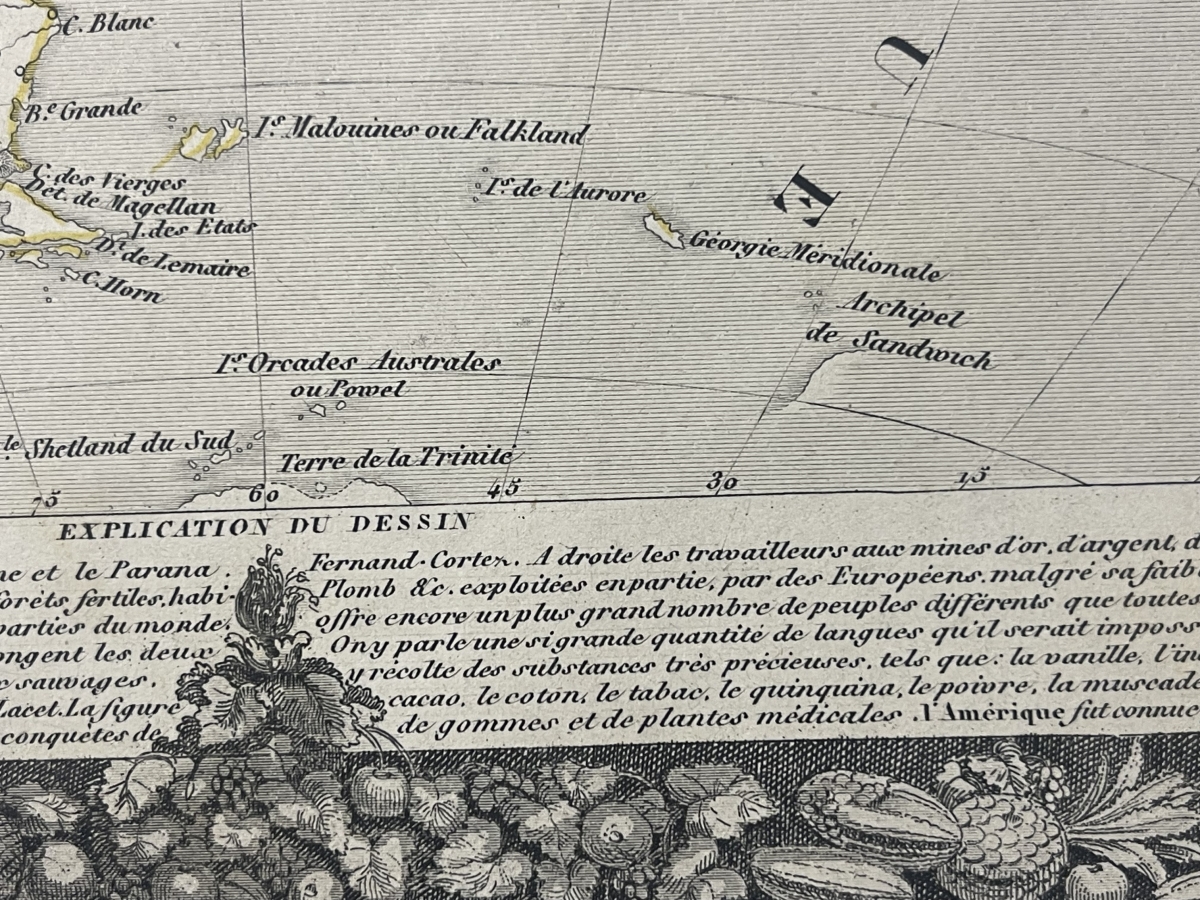 C. Blanc
U
B.e Grande
I.s Malouines ou Falkland
C. des Vierges
Det. de Magellan
I.s de l'Aurore
E
I. des Etats
D.t de Lemaire
Géorgie Méridionale
C. Horn
Archipel
de Sandwich
I.s Orcades Australes
ou Powel
le Shetland du Sud
Terre de la Trinité
75 60 45 30 15
EXPLICATION DU DESSIN
ne et le Parana.
forêts fertiles, habi-
parties du monde.
ongent les deux
sauvages.
Lacet. La figure
conquêtes de
Fernand-Cortez. A droite les travailleurs aux mines d'or, d'argent, d
Plomb &c. exploitées en partie, par des Européens. malgré sa faib
offre encore un plus grand nombre de peuples différents que toutes
On y parle une si grande quantité de langues qu'il serait imposs
y récolte des substances très précieuses, tels que: la vanille, l'in
cacao, le coton, le tabac, le quinquina, le poivre, la muscade
de gommes et de plantes médicales. l'Amérique fut connue